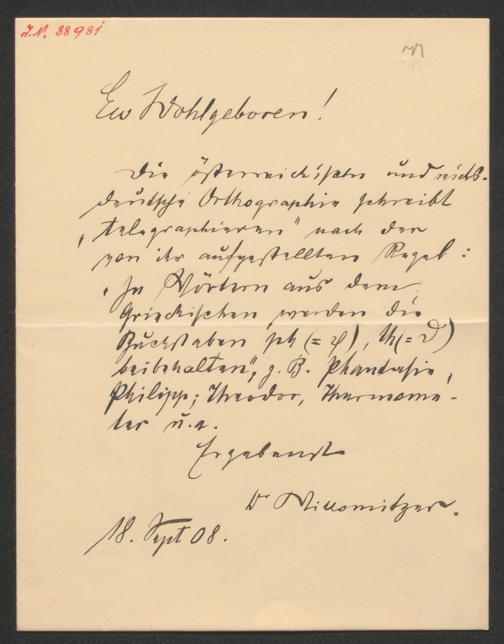 J.N. 88981
Ew Wohlgeboren!
Die österreichische und reichs-
deutsche Orthographie schreibt
„telegraphieren" nach der
von ihr aufgestellten Regel:
„In Wörtern aus dem
Griechischen werden die
Buchstaben ph (= φ), th (= ϑ)
beibehalten", z. B. Phantasie,
Philipp; Theodor, Thermome-
ter u. a.
Ergebenst
Dr Willomitzer.
18. Sept 08.